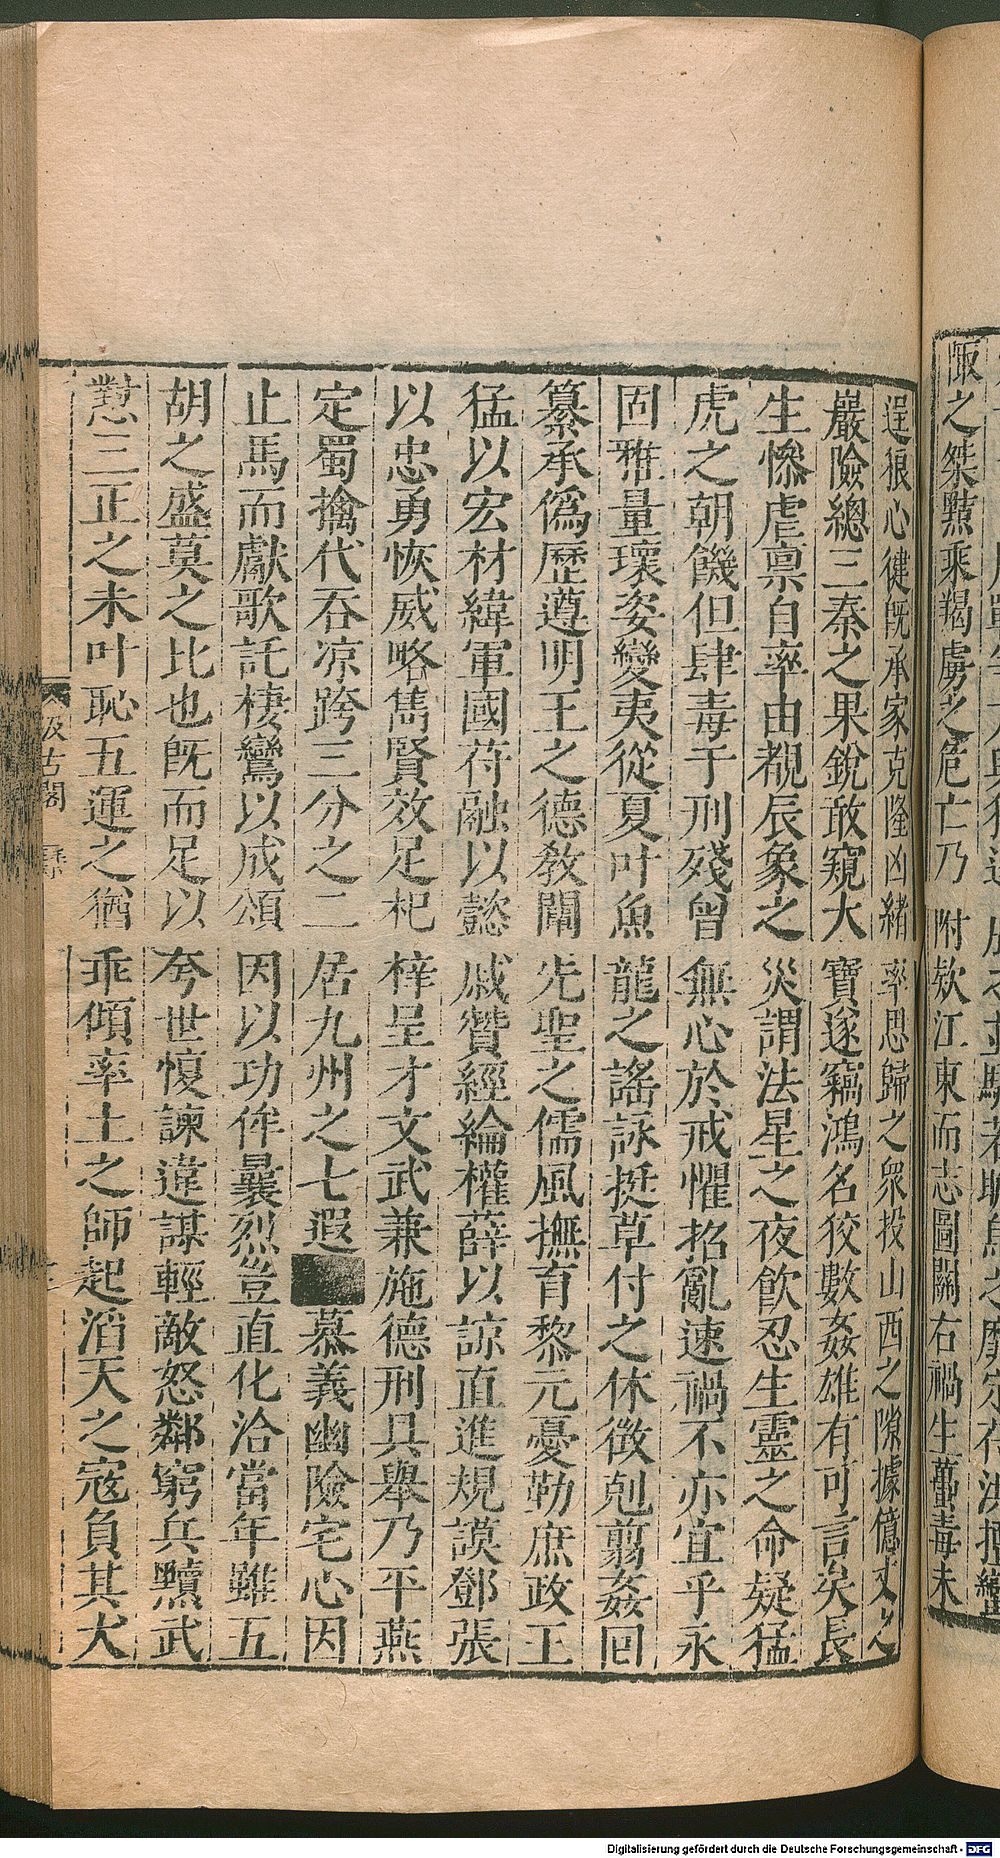 陬之桀黠乘羯虜之危亡乃附欵江東而志圖關右禍生蠆毒未
逞狼心健既承家克隆凶緒率思歸之衆投山西之隙據億丈之
巖險總三秦之果銳敢窺大寶遂竊鴻名狡數姦雄有可言矣長
生慘虐禀自率由覩辰象之災謂法星之夜飲忍生靈之命疑猛
虎之朝饑但肆毒于刑殘曾無心於戒懼招亂速禍不亦宜乎永
固雅量瓌姿變夷從夏叶魚龍之謠詠挺草付之休徵剋翦姦回
纂承僞歷遵明王之德教闡先聖之儒風撫育黎元憂勤庶政王
猛以宏材緯軍國苻融以懿戚贊經綸權薛以諒直進規謨鄧張
以忠勇恢威略雋賢效足杞梓呈才文武兼施德刑具舉乃平燕
定蜀擒代吞凉跨三分之二居九州之七遐慕義幽險宅心因
止馬而獻歌託棲鸞以成頌因以功侔曩烈豈直化洽當年雖五
胡之盛莫之比也旣而足以夸世愎諫違謀輕敵怒鄰窮兵黷武
懟三正之未叶恥五運之猶乖傾率土之師起滔天之寇負其犬
汲古閣
Digitalisierung gefördert durch die Deutsche Forschungsgemeinschaft - DFG